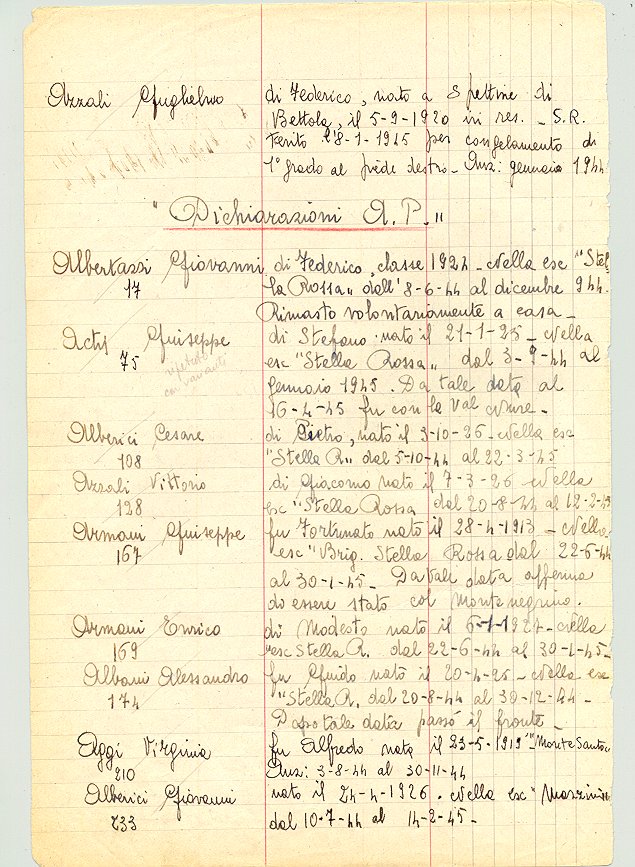 Azzali Guglielmo di Federico, nato a Spettine di
Bettola, il 5-9-1920 in res. - S.R.
Ferito l'8-1-1945 per congelamento di
1° grado al piede destro - Anz: gennaio 1944
"Dichiarazioni A.P."
Albertazzi Giovanni di Federico, classe 1924 - Nella esc "Stel
17 la Rossa" dall'8-6-44 al dicembre 944.
Rimasto volontariamente a casa -
Actis Guiseppe di Stefano nato il 21-1-25 - Nella
75 esc "Stella Rossa" dal 3-9-44 al
ripetuto con varianti
gennaio 1945. Da tale data al
16-4-45 fu con la Val Nure -
Alberici Cesare di Pietro, nato il 3-10-26 - Nella esc
108 "Stella R." dal 5-10-44 al 22-3-45
Azzali Vittorio di Giacomo nato il 7-3-26 Nella
128 esc "Stella Rossa dal 20-8-44 al 12-2-45
Armani Guiseppe fu Fortunato nato il 28-4-1913 - Nella
167 esc "Brig. Stella Rossa dal 22-6-44
al 30-1-45 - Da tale data afferma
do essere stato col Montenegrino.
Armani Enrico di Modesto nato il 6-1-1927 - Nella
169 esc Stella R. dal 22-6-44 al 30-1-45 -
Albani Alessandro fu Guido nato il 20-4-25 - Nella esc
174 "Stella R. dal 20-8-44 al 30-12-44 -
Dopo tale data passò il fronte -
Aggi Virginia fu Alfredo nata il 23-5-1919 "Monte Santo"
210 Anz: 3-8-44 al 30-11-44
Alberici Giovanni nato il 24-4-1926. Nella esc "Mazzini"
233 dal 10-7-44 al 14-2-45 -